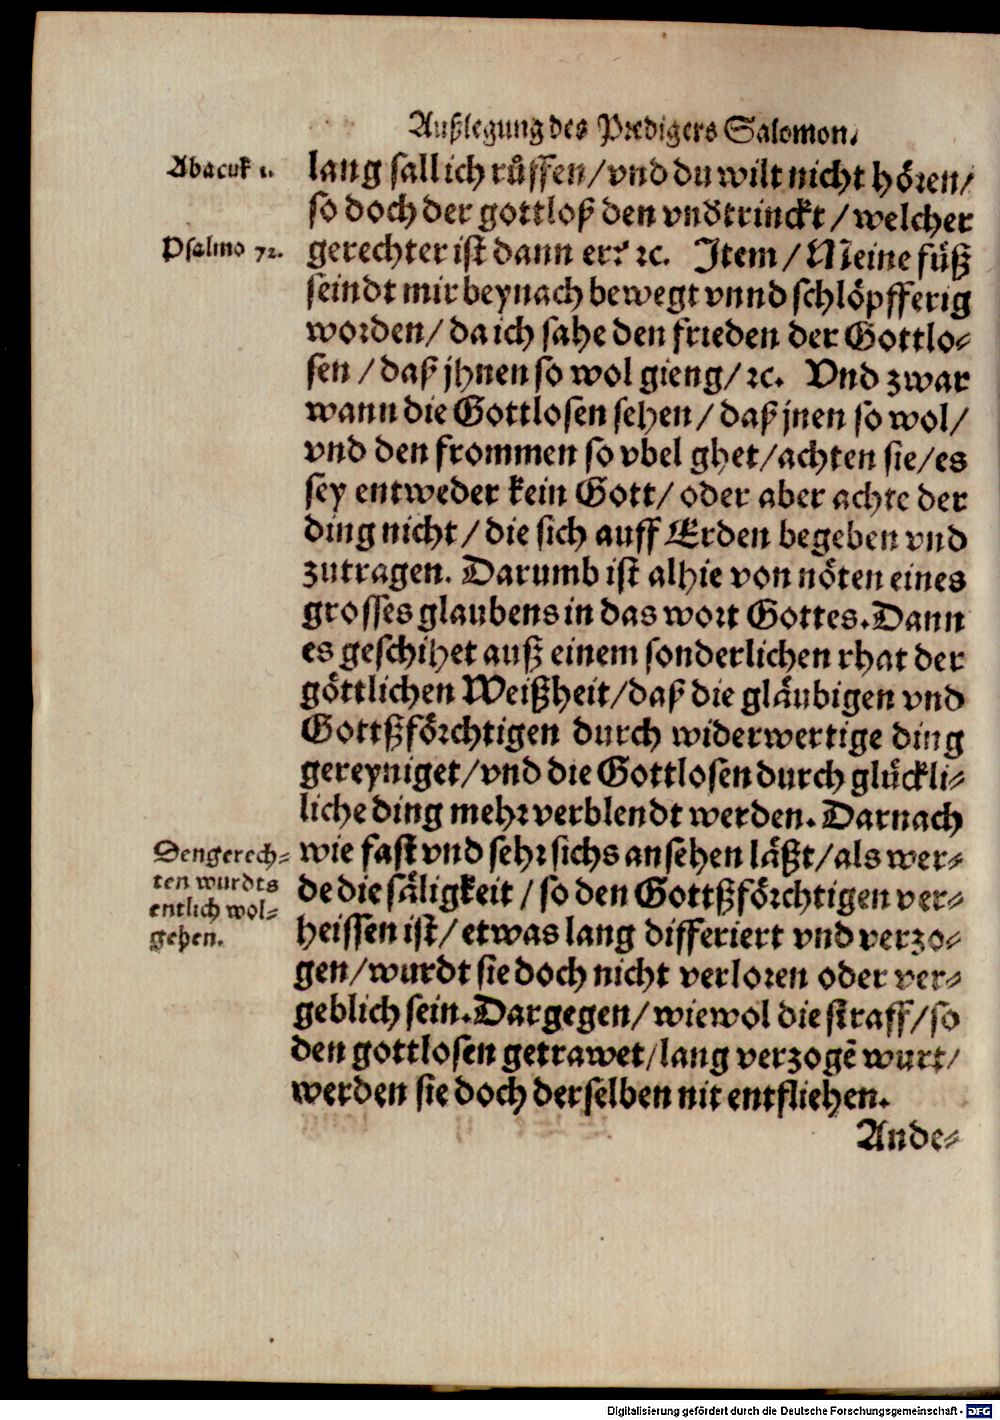 Außlegung des Predigers Salomon.
Abacuk 1.
lang sall ich růffen/vnd du wilt nicht hören/
so doch der gottloß den vndtrinckt/welcher
Psalmo 72.
gerechter ist dann er? ꝛc. Item/Meine füß
seindt mir beynach bewegt vnnd schlöpfferig
worden/da ich sahe den frieden der Gottlo⸗
sen/daß jhnen so wol gieng/ꝛc. Vnd zwar
wann die Gottlosen sehen/daß jnen so wol/
vnd den frommen so vbel ghet/achten sie/es
sey entweder kein Gott/oder aber achte der
ding nicht/die sich auff Erden begeben vnd
zutragen. Darumb ist alhie von nöten eines
grosses glaubens in das wort Gottes. Dann
es geschihet auß einem sonderlichen rhat der
göttlichen Weißheit/daß die gläubigen vnd
Gottßförchtigen durch widerwertige ding
gereyniget/vnd die Gottlosen durch glückli⸗
liche ding mehr verblendt werden. Darnach
Den gerech⸗
ten wurdts
entlich wol⸗
gehen.
wie fast vnd sehr sichs ansehen läßt/als wer⸗
de die säligkeit/so den Gottßförchtigen ver⸗
heissen ist/etwas lang differiert vnd verzo⸗
gen/wurdt sie doch nicht verloren oder ver⸗
geblich sein. Dargegen/wiewol die straff/so
den gottlosen getrawet/lang verzogẽ wurt/
werden sie doch derselben nit entfliehen.
Ande⸗
Digitalisierung gefördert durch die Deutsche Forschungsgemeinschaft - DFG